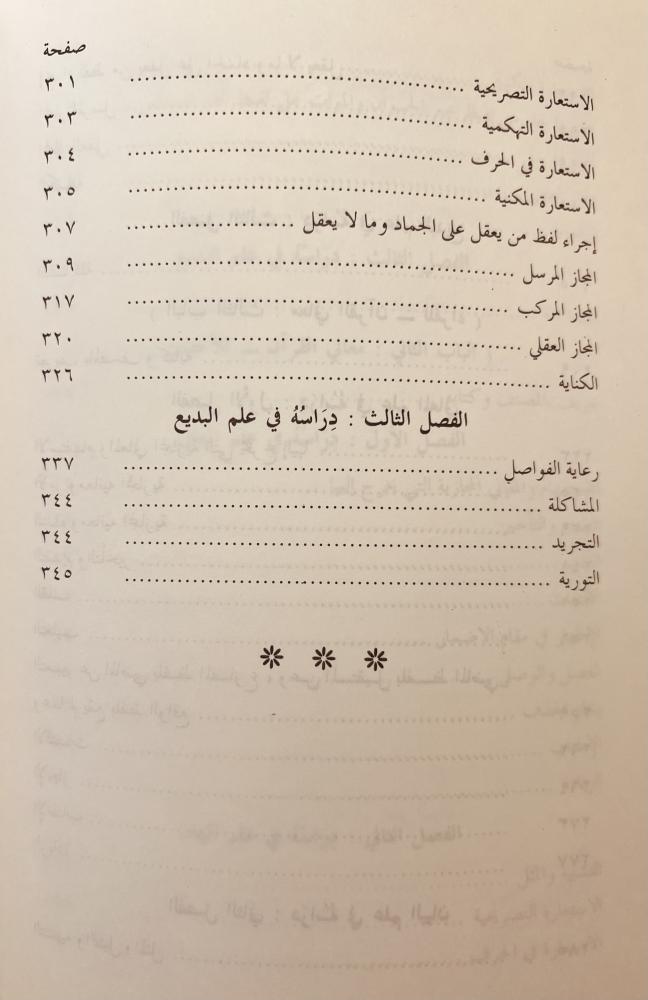 صفحة
الاستعارة التصريحية ........................................ ٣٠١
الاستعارة التهكمية ........................................ ٣٠٣
الاستعارة في الحرف ........................................ ٣٠٤
الاستعارة المكنية ........................................ ٣٠٥
إجراء لفظ من يعقل على الجماد وما لا يعقل .................... ٣٠٧
المجاز المرسل ........................................ ٣٠٩
المجاز المركب ........................................ ٣١٧
المجاز العقلي ........................................ ٣٢٠
الكناية ........................................ ٣٢٦
الفصل الثالث : دِرَاسُهُ في علم البديع
رعاية الفواصل ........................................ ٣٣٧
المشاكلة ........................................ ٣٤٤
التجريد ........................................ ٣٤٤
التورية ........................................ ٣٤٥